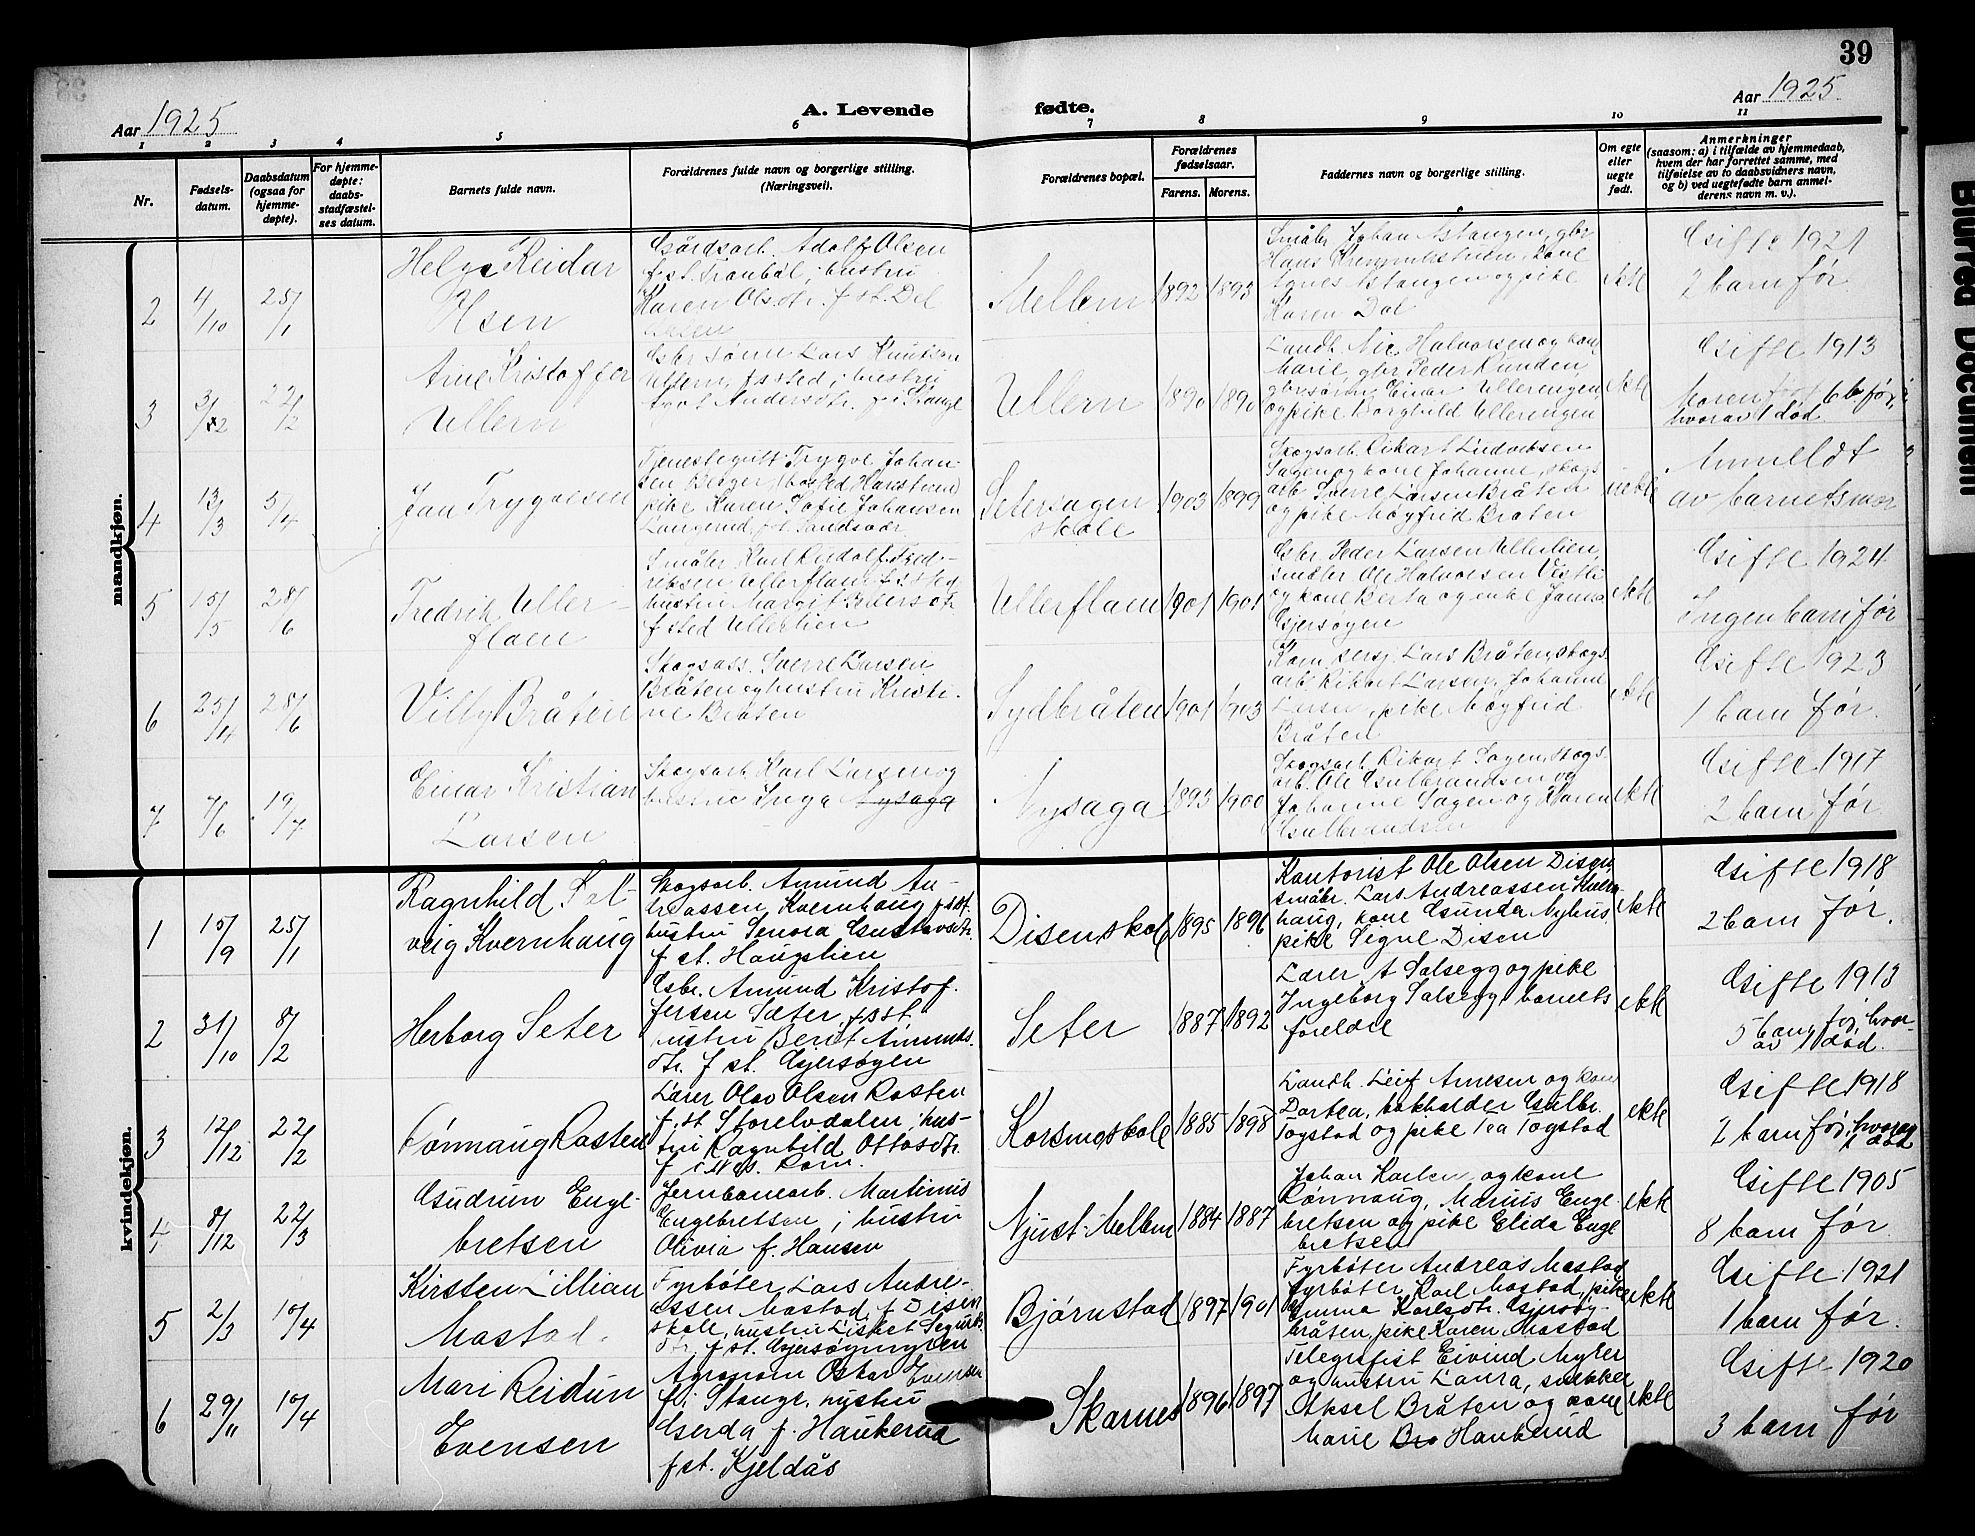 39
Aar 1925
A. Levende
fødte.
Aar 1925
1 2 3 4 5 6 7 8 9 10 11
Nr.
Fødsels-
datum.
Daabsdatum
(ogsaa for
hjemme-
døpte).
For hjemme-
døpte:
daabs-
stadfæstel-
ses datum.
Barnets fulde navn.
Forældrenes fulde navn og borgerlige stilling.
(Næringsvei).
Forældrenes bopæl.
Forældrenes
fødselsaar.
Farens. Morens.
Faddernes navn og borgerlige stilling.
Om egte
eller
uegte
født.
Anmerkninger
(saasom: a) i tilfælde av hjemmedaab,
hvem der har forrettet samme, med
tilføielse av to daabsvidners navn,
og b) ved uegtefødte barn anmel-
derens navn m. v.).
mandkjøn.
2 4/10 25/1
Helge Reidar
Olsen
Gårdsarb. Adolf Olsen
f. st. Tronbøl, i hustru
Karen Olsdtr. f. st. Dol
Mellem
1892 1893
Småbr. Johan Astangen, gbr
Agnes Astangen og pike
Karen Dol
ekte
Gifte 1921
2 barn før
3 3/12 22/2
Arne Kristoffer
Ullern
Gbr. sønn Lars Knutsen
Ullern, f. sted; hustru
Andersdtr. f. i Stange
Ullern
1890 1890
Landh. Nic. Halvorsen og kone
Marie, gbr Peder Runden,
gbrsønn Einar Ullerengen
og pike Borghild Ullerengen
ekte
Gifte 1913
6 b. før,
hvorav 1 død
4 13/3 5/4
Jan Trygvesen
Tjenestegutt Trygve Johan-
sen Berger,
pike Karen Sofie Johansen
Langerud, f. st. Sandsvær
Setersagen
skole
1903 1899
Skogsarb. Rikart Ludvigsen
Sagen og kone Johanne, skogs
arb. Sverre Larsen Bråten
og pike Magfrid Bråten
uekte
Anmeldt
av barnets mor
5 15/5 28/6
Fredrik Uller-
flaen
Småbr. Karl Rudolf Fred-
riksen Ullerflaen f. sted
hustru Margit Pedersdtr
f. sted Ullerlien
Ullerflaen
1901 1901
Gbr. Peder Larsen Ullerlien,
småbr Ole Halvorsen Vestli
og kone Berta og enke Janna
Gjersøyen
ekte
Gifte 1924
Ingen barn før
6 25/4 28/6
Villy Bråten
Skogsass. Sverre Larsen
Bråten og hustru Kristi-
ne Bråten
Sydbråten
1901 1903
Korn. sersj. Lars Bråten, skogs
arb. Rikart Larsen, Johanne
Larsen, pike Magfrid
Bråten
ekte
Gifte 1923
1 barn før.
7 7/6 19/7
Einar Kristian
Larsen
Skogsarb. Karl Larsen og
hustru Inga Nysaga
Nysaga
1893 1900
Skogsarb. Rikart Sagen, skogs
arb. Ole Gulbrandsen og
Johanne Sagen og Karen
Gulbrandsen
ekte
Gifte 1917
2 barn før
kvindekjøn.
1 15/9 25/1
Ragnhild Sol-
veig Kvernhaug
Skogsarb. Amund An-
dreassen, Kvernhaug f. sst.
hustru Senora Gustavsdtr.
f. st. Haugslien
Disen skole
1895 1896
Kantorist Ole Olsen Disen,
småbr. Lars Andreassen Kvern-
haug, kone Gunda Nyhus,
pike Signe Disen
ekte
Gifte 1918
2 barn før.
2 31/10 8/2
Herborg Seter
Gbr. Amund Kristof-
fersen Sæter, f. sst.
hustru Berit Amunds-
dtr. f. st. Gjersøyen
Seter
1887 1892
Lærer A Salsegg og pike
Ingeborg Salsegg, barnets
foreldre
ekte
Gifte 1913
5 barn før, hvor-
av 1 død.
3 12/12 22/2
Rønnaug Rasten
Lærer Olav Olsen Rasten
f. st Storelvdalen, hus-
tru Ragnhild Ottosdtr.
f. i Nes, Rom.
Korsmo skole
1885 1898
Landh. Leif Arnesen og kone
Dortea, bokholder Gulbr.
Togstad og pike Tea Togstad
ekte
Gifte 1918
2 barn før, hvorav
1 død
4 8/12 22/3
Gudrun Enge-
bretsen
Jernbanearb. Martinus
Engebretsen; hustru
Olivia f. Hansen
Njust-Mellem
1884 1887
Johan Karlsen og kone
Rønnaug, Marius Enge-
bretsen og pike Elida Enge
bretsen
ekte
Gifte 1905
8 barn før.
5 2/3 10/4
Kirsten Lillian
Mastad.
Fyrbøter Lars Andre-
assen Mastad, f. Disen
skole, hustru Lisbet Sigurds-
dtr. f. st. Gjersøymyren
Bjørnstad
1897 1901
Fyrbøter Andreas Mastad
fyrbøter Karl Mastad, pike
Emma Karlsdtr.
bråten, pike Karen Mastad
ekte
Gifte 1921
1 barn før.
6 29/11 10/4
Mari Reidun
Evensen
Agronom Oskar Evensen
f. i Stange, hustru
Gerda f. Haukerud
f. st. Kjeldås
Skarnes
1896 1897
Telegrafist Eivind Myrer
og hustru Laura, snekker
Aksel Bråten og kone
Marie Bra Haukerud
ekte
Gifte 1920
3 barn før
Blurred Document